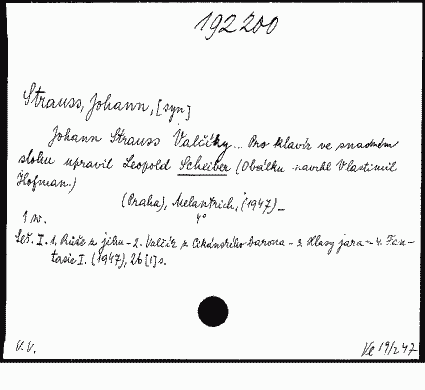 192200
Strauss, Johann, [syn]
Johann Strauss Valčíky... Pro klavír ve snadném
slohu upravil Leopold Scheiber (Obálku navrhl Vlastimil
Hofman.)
(Praha), Melantrich, (1947) -
1 sv. 4°
Seš. I. 1. Růže z jihu - 2. Valčík z Cikánského barona - 3. Hlasy jara - 4. Fan-
tasie I. (1947), 26 [1] s.
V.V. Ve 19/247